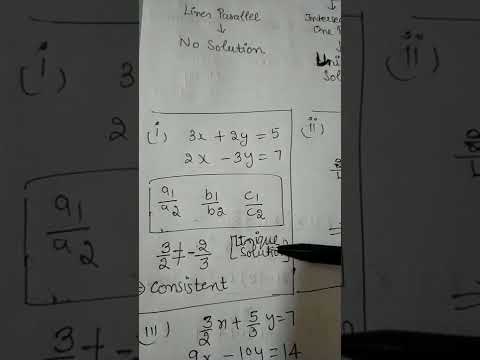 Lines Parallel
↓
No Solution
Interse
One P
↓
Uni
Sol
(i) 3x + 2y = 5
2x - 3y = 7
a1/a2 b1/b2 c1/c2
3/2 ≠ -2/3 [Unique Solution]
⇒ Consistent
iii) 3/2 x + 5/3 y = 7
9x - 10y = 14
(ii)
(i) 3x
2
a1/a2
3/2 ≠
(ii)